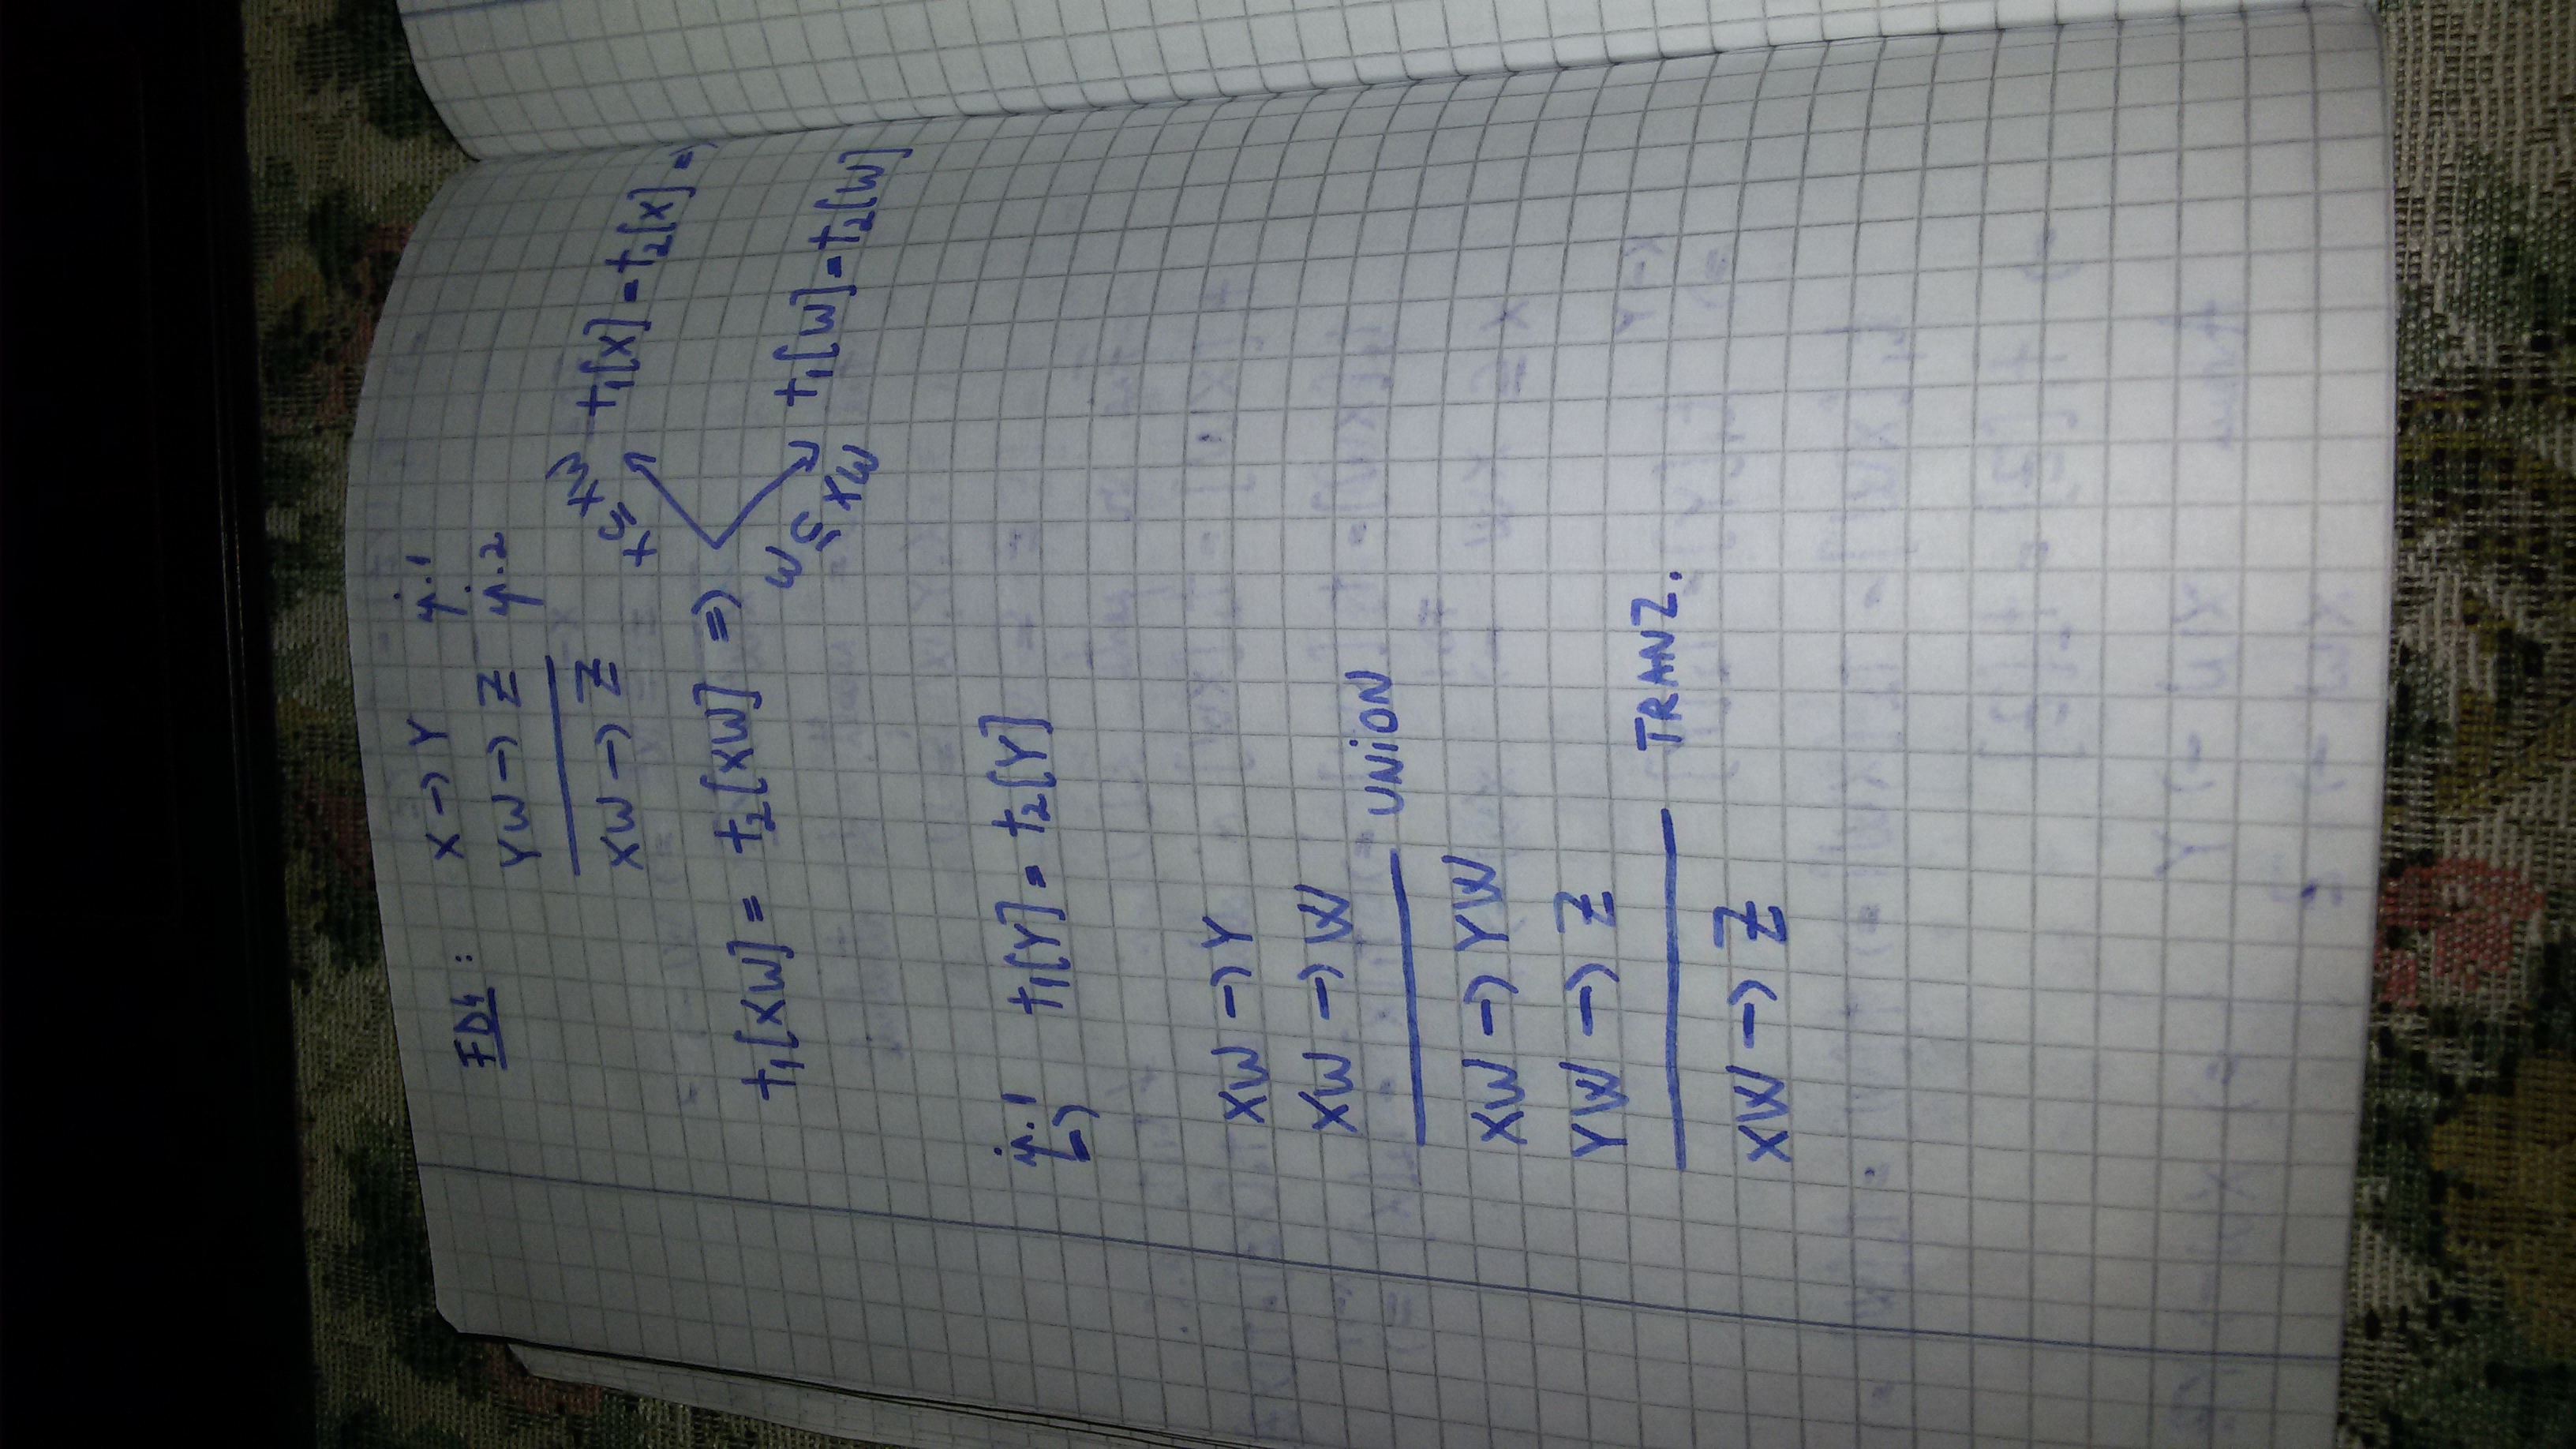 FD4: X → Y ip.1
YW → Z ip.2
XW → Z
X ⊆ XW t₁[X] = t₂[X] =>
t₁[XW] = t₂[XW] =>
W ⊆ XW t₁[W] = t₂[W]
ip.1
=> t₁[Y] = t₂[Y]
XW → Y
XW → W
UNiON
XW → YW
YW → Z
TRANZ.
XW → Z